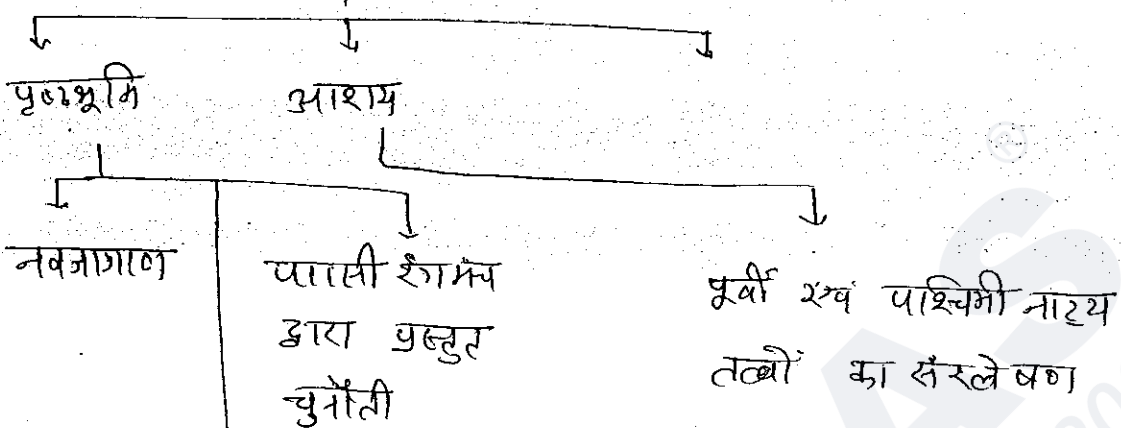 पृष्ठभूमि
आशय
नवजागरण
पारसी रंगमंच
द्वारा प्रस्तुत
चुनौती
पूर्वी एवं पाश्चिमी नाट्य
तत्वों का संश्लेषण